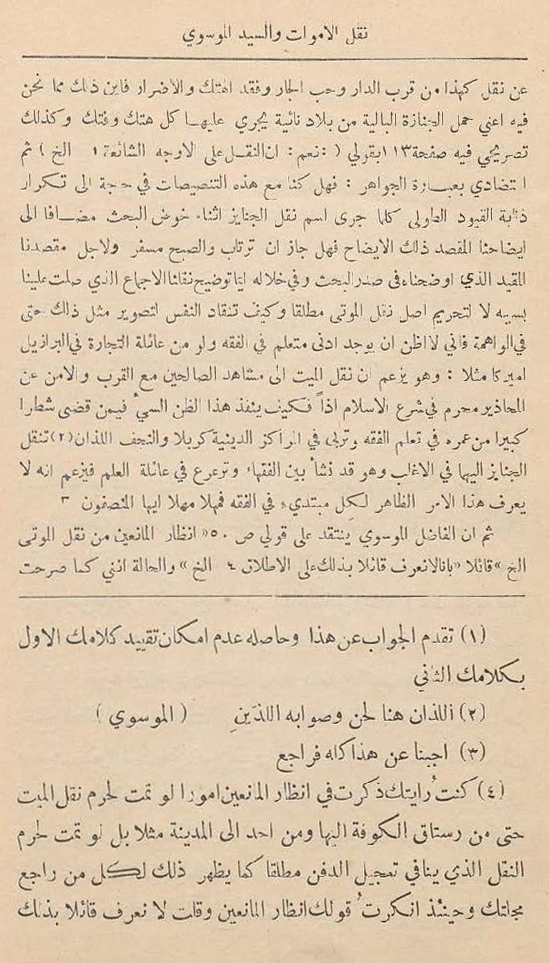 نقل الاموات والسيد الموسوي
عن نقل كهذا من قرب الدار وحب الجار وفقد الهتك والأضرار فاين ذلك مما نحن
فيه اعني حمل الجنازة البالية من بلاد نائية يجري عليها كل هتك وفتك وكذلك
تصريحي فيه صفحة ١١٣ بقولي (: نعم: ان النقل على الاوجه الشائعة ١ الخ ) ثم
اعتضادي بعبارة الجواهر : فهل كنا مع هذه التنصيصات في حجة الى تكرار
ذنابة القيود الطولى كلما جرى اسم نقل الجنايز اثناء خوض البحث مضافا الى
ايضاحنا المقصد ذلك الايضاح فهل جاز ان ترتاب والصبح مسفر ولاجل مقصدنا
المقيد الذي اوضحناه في صدر البحث وفي خلاله ايما توضيح نقلنا الاجماع الذي صلت علينا
بسببه لا لتحريم اصل نقل الموتى مطلقا وكيف تنقاد النفس لتصوير مثل ذلك حتى
في الواهمة فاني لا اظن ان يوجد ادنى متعلم في الفقه ولو من عائلة التجارة في البرازيل
اميركا مثلا : وهو يزعم ان نقل الميت الى مشاهد الصالحين مع القرب والامن عن
المحاذير محرم في شرع الاسلام اذاً فكيف ينفذ هذا الظن السيء فيمن قضى شطارا
كبيرا من عمره في تعلم الفقه وتربى في المراكز الدينية كربلا والنجف اللذان (٢) تنقل
الجنايز اليها في الاغلب وهو قد نشأ بين الفقهاء وترعرع في عائلة العلم فيزعم انه لا
يعرف هذا الامر الظاهر لكل مبتديء في الفقه فمهلا مهلا ايها المنصفون ٣
ثم ان الفاضل الموسوي ينتقد على قولي ص ٥٠ « انظار المانعين من نقل الموتى
الخ » قائلا « بانا لا نعرف قائلا بذلك على الاطلاق ٤ الخ » والحالة انني كما صرحت
(١) تقدم الجواب عن هذا وحاصله عدم امكان تقييد كلامك الاول
بكلامك الثاني
(٢) اللذان هنا لحن وصوابه اللذَينِ ( الموسوي )
(٣) اجبنا عن هذا كله فراجع
(٤) كنتُ رايتك ذكرت في انظار المانعين امورا لو تمت لحرم نقل الميت
حتى من رستاق الكوفة اليها ومن احد الى المدينة مثلا بل لو تمت لحرم
النقل الذي ينافي تعجيل الدفن مطلقا كما يظهر ذلك لكل من راجع
مجلتك وحينئذ انكرتُ قولك انظار المانعين وقلت لا نعرف قائلا بذلك